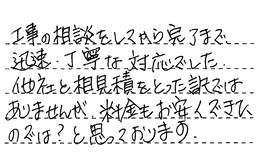 工事の相談をしてから完了まで
迅速・丁寧な対応でした
他社と相見積をとった訳では
ありませんが、料金もお安くできた
のでは？と思っております。